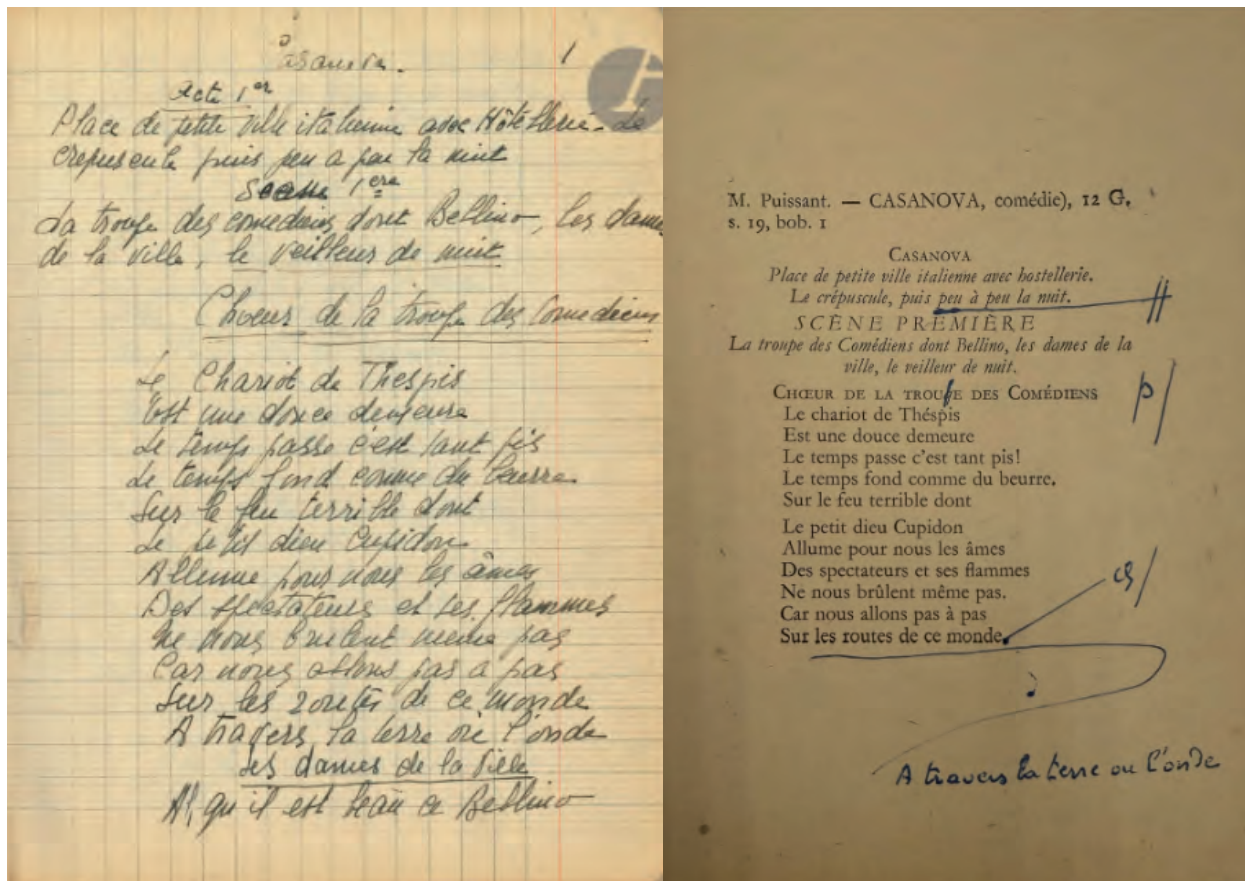 Casanova.
1
Acte 1er
Place de petite ville italienne avec Hôtellerie. Le
crepuscule puis peu a peu la nuit
Scene 1ere
La troupe des comediens dont Bellino, les dames
de la ville, le veilleur de nuit
Choeur de la troupe des Comediens
Le Chariot de Thespis
Est une douce demeure
Le temps passe c'est tant pis
Le temps fond comme du beurre
Sur le feu terrible dont
Le petit dieu Cupidon
Allume pour nous les âmes
Des spectateurs et ses flammes
Ne nous brulent meme pas
Car nous allons pas a pas
Sur les routes de ce monde
A travers la terre où l'onde
Les dames de la ville
Ah, qu'il est beau ce Bellino
M. Puissant. — CASANOVA, comédie), 12 G.
s. 19, bob. 1
CASANOVA
Place de petite ville italienne avec hostellerie.
Le crépuscule, puis peu à peu la nuit.
SCÈNE PREMIÈRE
La troupe des Comédiens dont Bellino, les dames de la
ville, le veilleur de nuit.
CHŒUR DE LA TROUPE DES COMÉDIENS
p/
Le chariot de Théspis
Est une douce demeure
Le temps passe c'est tant pis!
Le temps fond comme du beurre.
Sur le feu terrible dont
Le petit dieu Cupidon
Allume pour nous les âmes
Des spectateurs et ses flammes
Ne nous brûlent même pas.
Car nous allons pas à pas
Sur les routes de ce monde.
A travers la terre ou l'onde